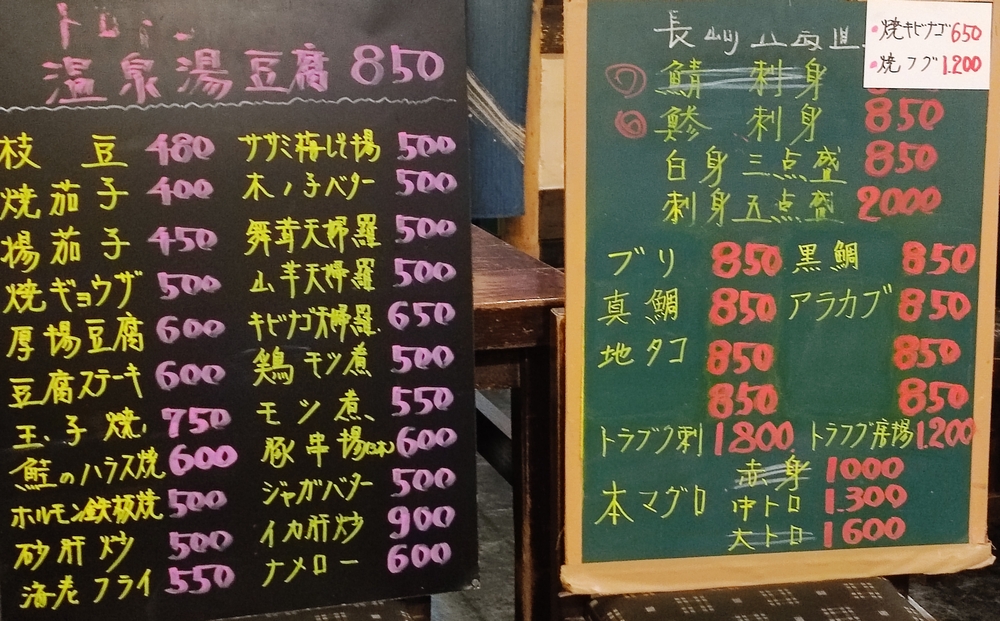 トロトロ
温泉湯豆腐 850
枝豆 480
焼茄子 400
揚茄子 450
焼ギョウザ 500
厚揚豆腐 600
豆腐ステーキ 600
玉子焼 750
鮭のハラス焼 600
ホルモン鉄板焼 500
砂肝炒 500
海老フライ 550
ササミ梅しそ揚 500
木ノ子バター 500
舞茸天婦羅 500
山芋天婦羅 500
キビナゴ天婦羅 650
鶏モツ煮 500
モツ煮 550
豚串揚 600
ジャガバター 500
イカ肝炒 900
ナメロー 600
長崎五島直
・焼キビナゴ 650
・焼フグ 1.200
鯖刺身
鯵刺身 850
白身三点盛 850
刺身五点盛 2000
ブリ 850 黒鯛 850
真鯛 850 アラカブ 850
地タコ 850 850
850 850
トラフグ刺 1800 トラフグ唐揚 1.200
赤身 1000
本マグロ 中トロ 1.300
大トロ 1600